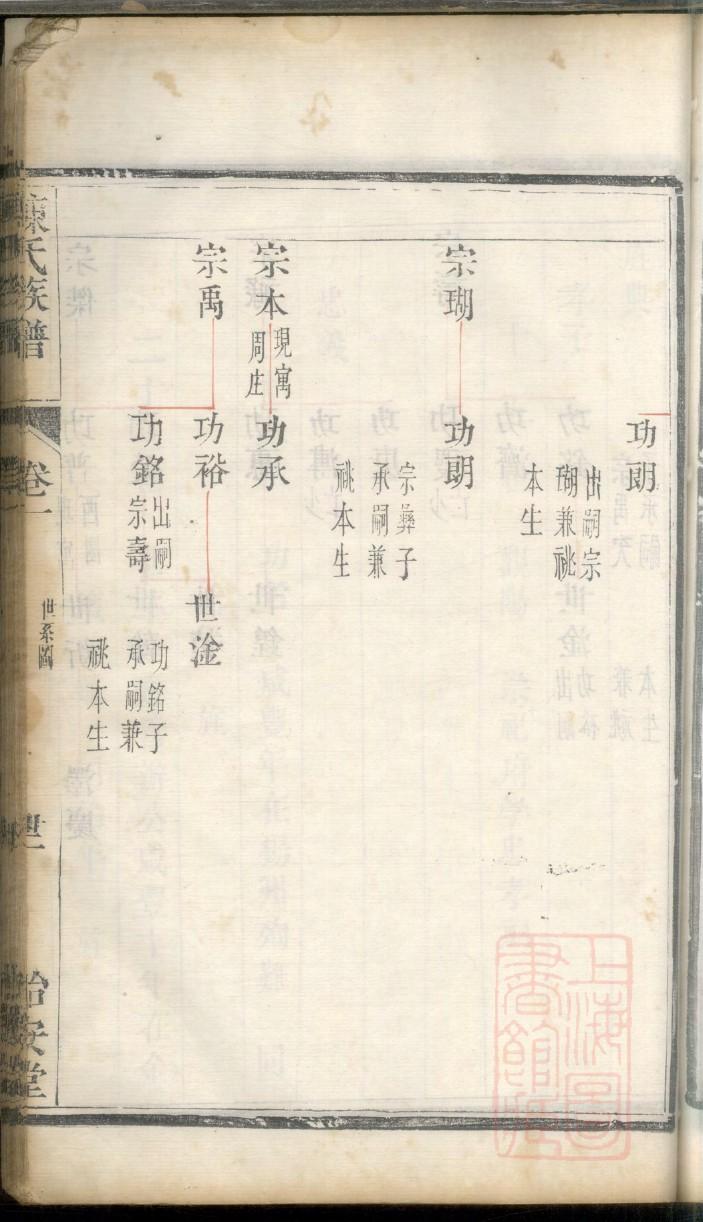 功朗
出嗣宗
瑚兼祧
本生
宗瑚
功朗
宗彝子
承嗣兼
祧本生
宗本
現寓
周庄
功承
宗禹
功裕
世淦
功銘子
承嗣兼
祧本生
功銘
出嗣
宗壽
氏族譜
卷一
世系圖
怡安堂
上海圖
書館藏